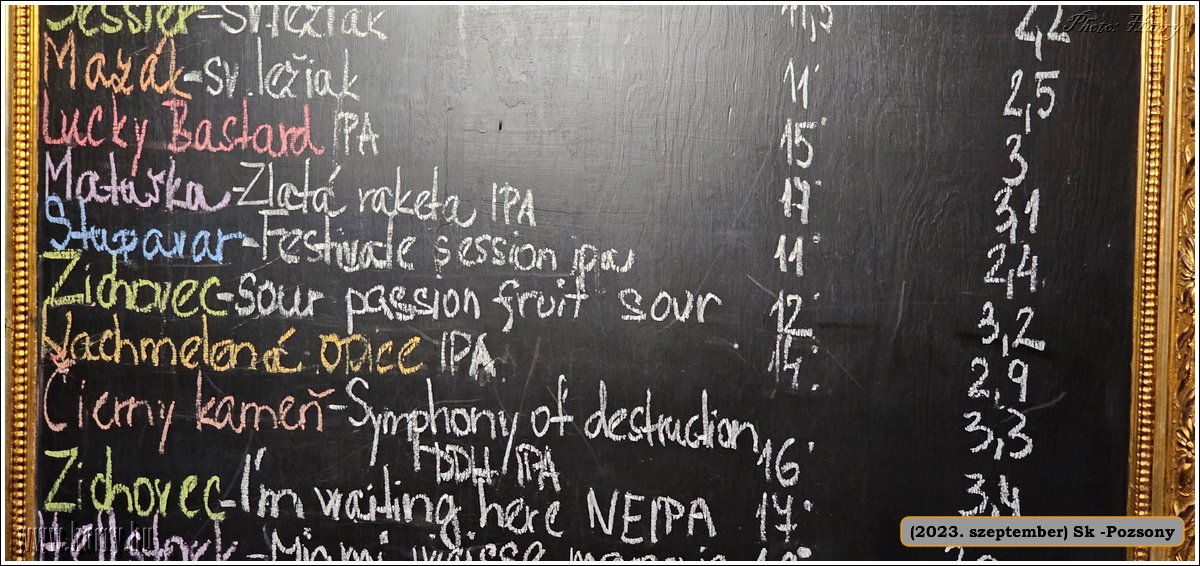 Jessler-Sv.ležiak 11,5 2,2
Photo: Harry
Mazák-sv.ležiak 11° 2,5
Lucky Bastard IPA 15° 3
Matuška-Zlatá raketa IPA 17° 3,1
Stupavar-Festivale session ipa 11° 2,4
Zichovec-sour passion fruit sour 12° 3,2
Nachmelená opice IPA 14° 2,9
Čierny kameň-Symphony of destruction 16° 3,3
HBDH/IPA
Zichovec-I'm waiting here NEIPA 17° 3,4
(2023. szeptember) Sk -Pozsony